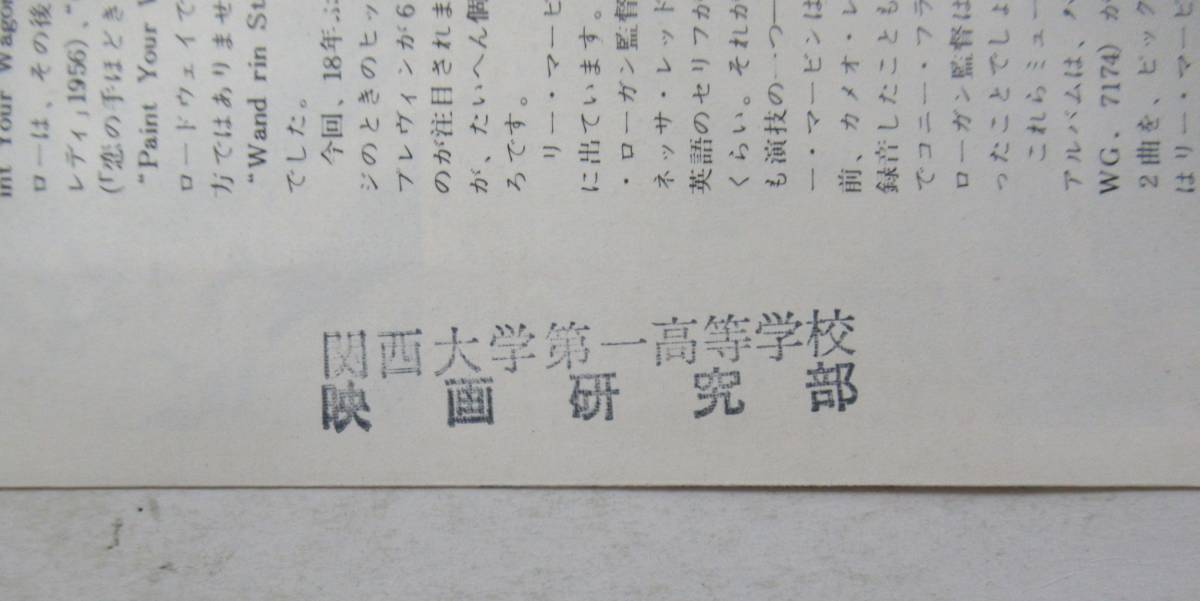 int Your Wagon
ローは、その後
レディ」1956)、“
(「恋の手ほどき
“Paint Your
ロードウェイで
方ではありませ
“Wand rin St
でした。
今回、18年ぶ
ジのときのヒッ
プレヴィンが6
のが注目されま
が、たいへん個
ろです。
リー・マービ
に出ています。
・ローガン監督
ネッサ・レッド
英語のセリフが
くらい。それが
も演技の一つ—
ー・マービンは
前、カメオ・レ
録音したことも
でコニー・フラ
ローガン監督は
ったことでしょ
これらミュー
アルバムは、パ
WG. 7174) が
2曲を、ビック
はリー・マービ
関西大学第一高等学校
映画研究部